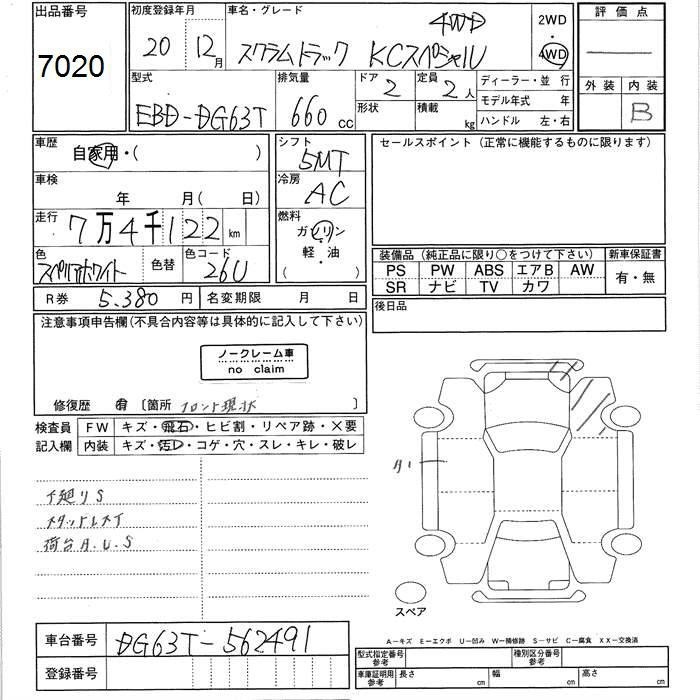 出品番号 初度登録年月 車名・グレード 評価点
7020 20 12月 スクラムトラック KCスペシャル 4WD 2WD・4WD
型式 排気量 ドア 定員 ディーラー・並行 外装 内装
EBD-DG63T 660cc 2 2人 モデル年式 年 B
形状 積載 kg ハンドル 左・右
車歴 シフト セールスポイント(正常に機能するものに限ります)
自家用・( ) 5MT
車検 冷房
年 月(日) AC
走行 燃料
7万4千122km ガソリン
・
軽・油
( )
色 色替 色コード 装備品(純正品に限り○をつけて下さい) 新車保証書
スペリアホワイト 26U PS PW ABS エアB AW 有・無
SR ナビ TV カワ
R券 5.380円 名変期限 月 日 後日品
注意事項申告欄(不具合内容等は具体的に記入して下さい)
ノークレーム車
no claim
修復歴 有 [箇所 フロント現状 ]
検査員 FW キズ・飛石・ヒビ割・リペア跡・X要
記入欄 内装 キズ・汚レ・コゲ・穴・スレ・キレ・破レ
下廻りS
スタッドレスタイ
荷台A.U.S
スペア
車台番号 DG63T-562491
登録番号
A-キズ E-エクボ U-凹み W-補修跡 S-サビ C-腐食 XX-交換済
型式指定番号 参考 種別区分番号 参考
車庫証明用 参考 長さ cm 幅 cm 高さ cm